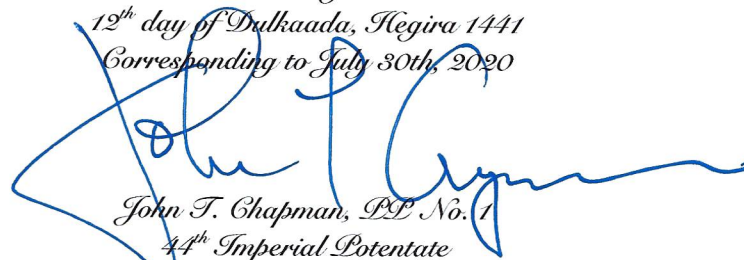 12th day of Dulkaada, Hegira 1441
Corresponding to July 30th, 2020
John T. Chapman, PP No. 1
44th Imperial Potentate